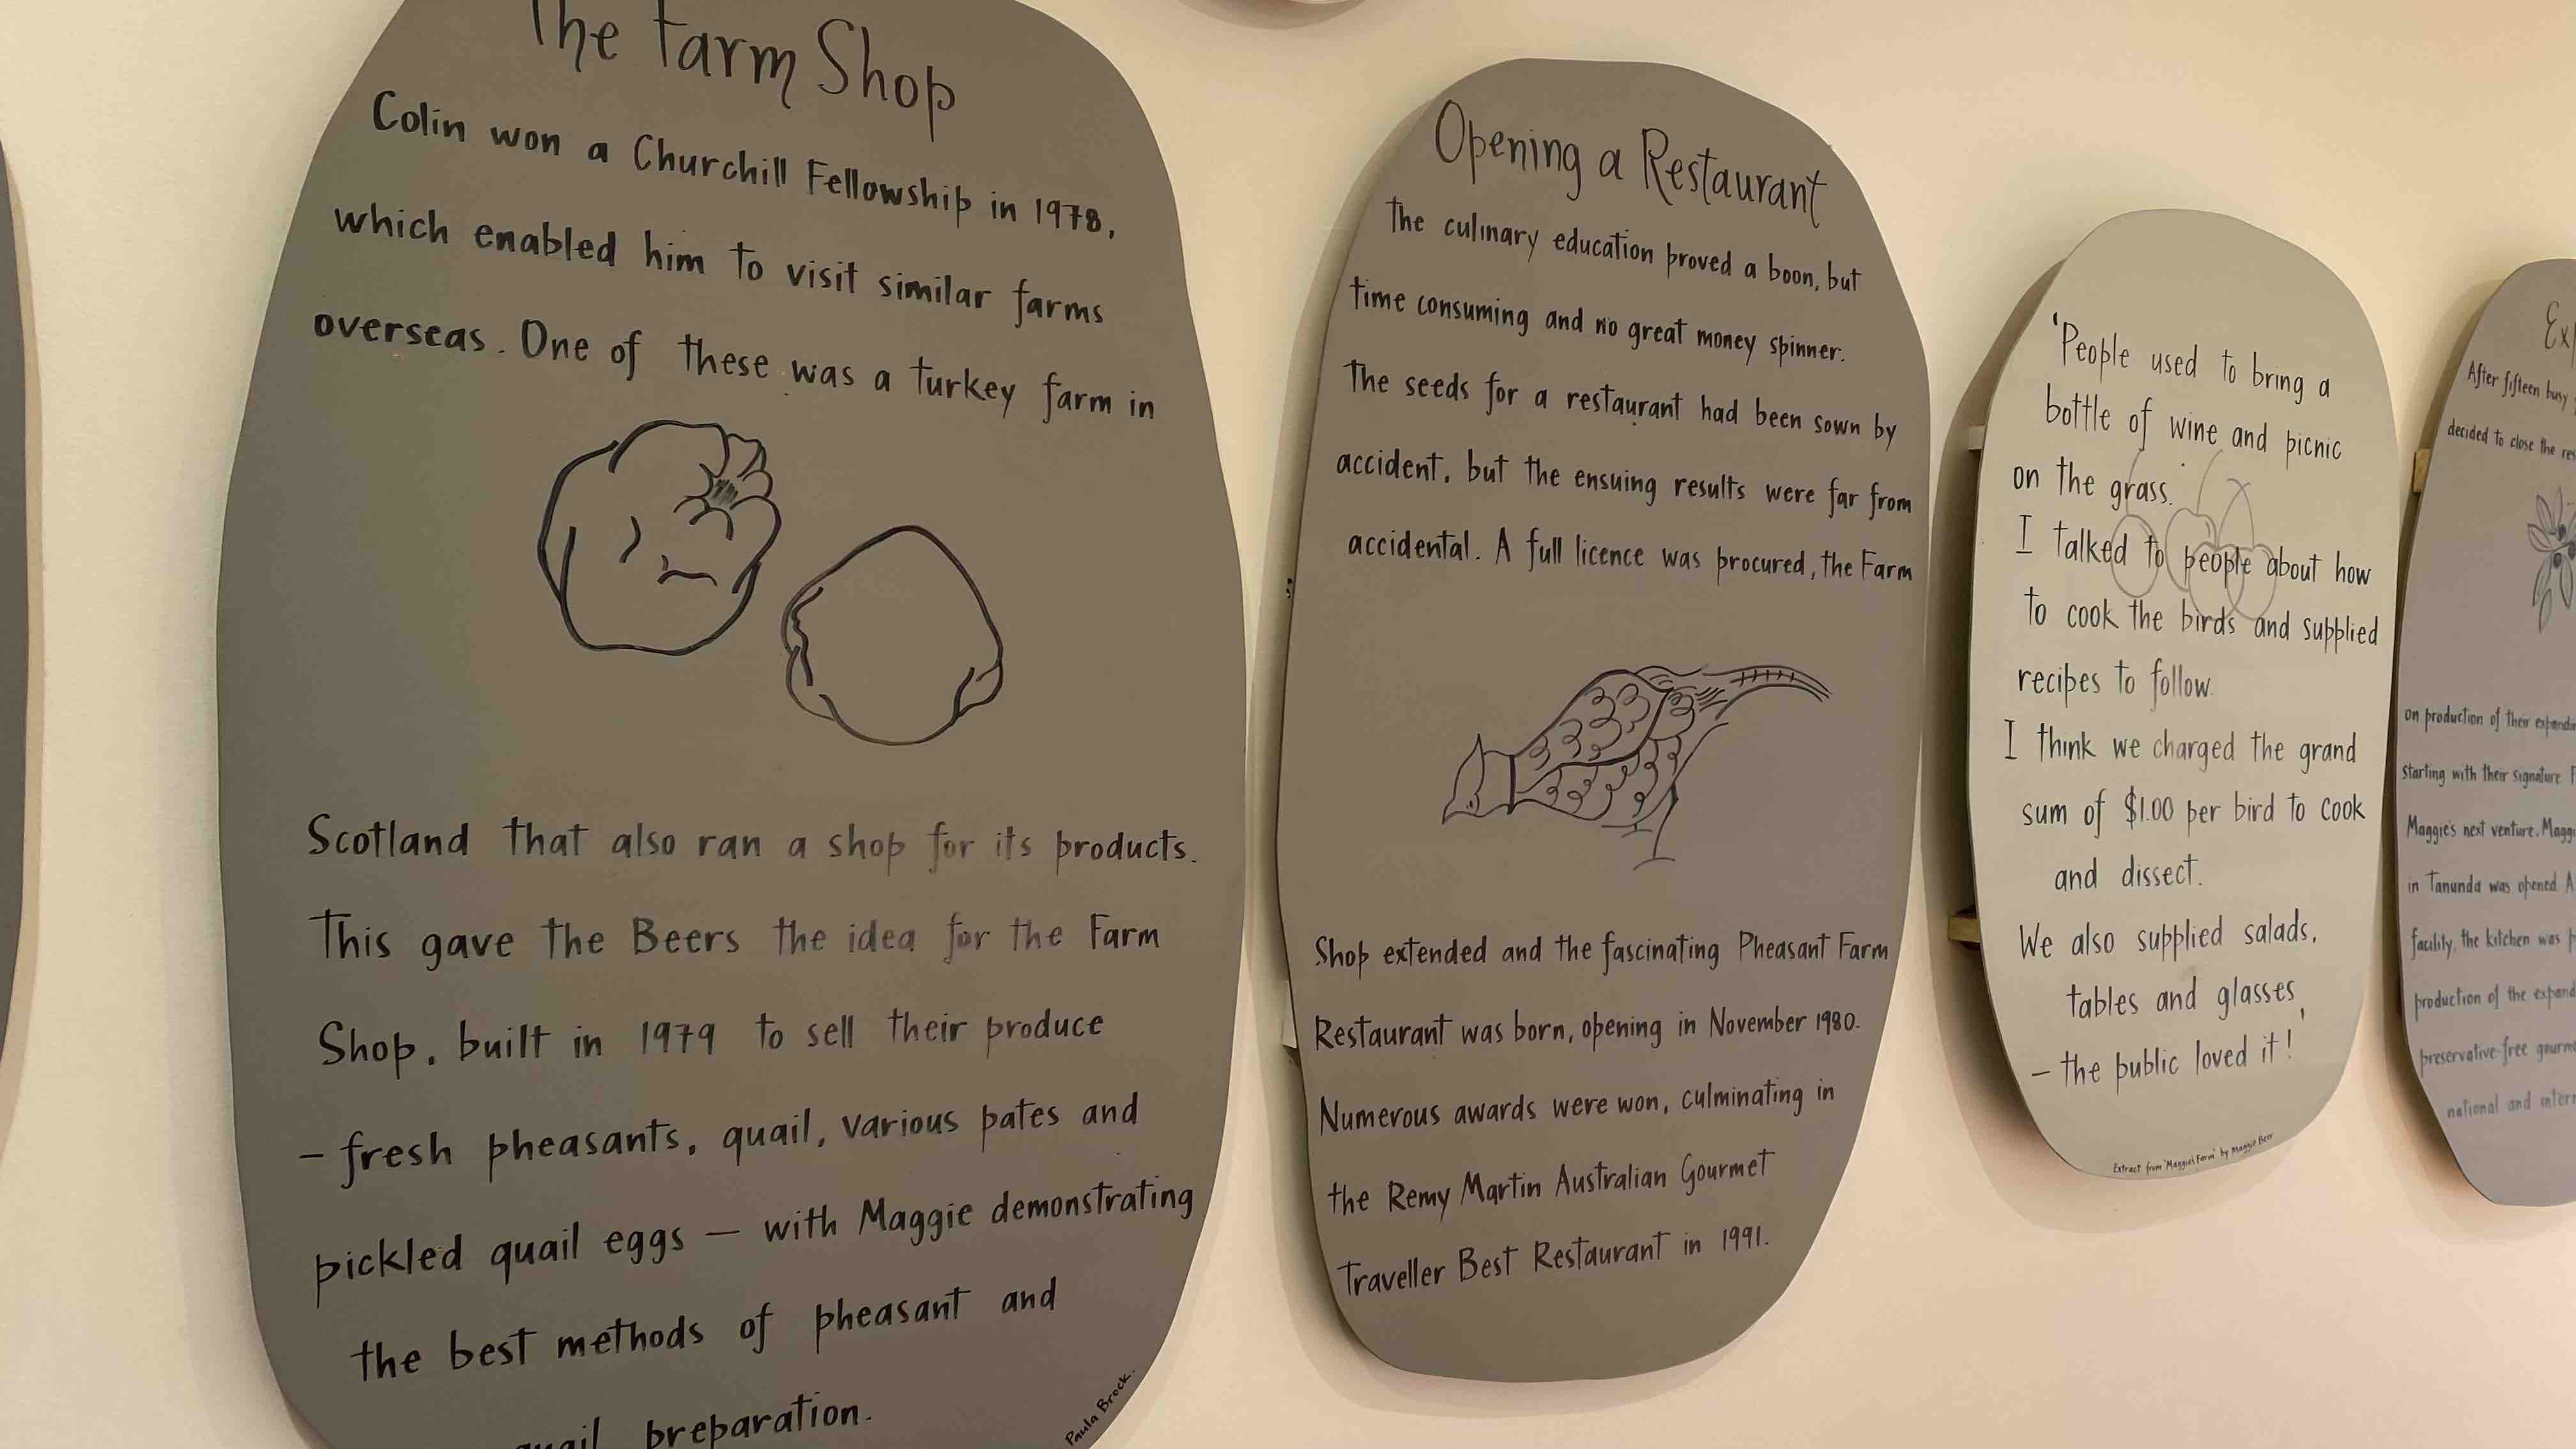 The Farm Shop
Colin won a Churchill Fellowship in 1978,
which enabled him to visit similar farms
overseas. One of these was a turkey farm in
Scotland that also ran a shop for its products.
This gave the Beers the idea for the Farm
Shop, built in 1979 to sell their produce
– fresh pheasants, quail, various pates and
pickled quail eggs – with Maggie demonstrating
the best methods of pheasant and
quail preparation.
Paula Brock.
Opening a Restaurant
The culinary education proved a boon, but
time consuming and no great money spinner.
The seeds for a restaurant had been sown by
accident, but the ensuing results were far from
accidental. A full licence was procured, the Farm
Shop extended and the fascinating Pheasant Farm
Restaurant was born, opening in November 1980.
Numerous awards were won, culminating in
the Remy Martin Australian Gourmet
Traveller Best Restaurant in 1991.
'People used to bring a
bottle of wine and picnic
on the grass.
I talked to people about how
to cook the birds and supplied
recipes to follow.
I think we charged the grand
sum of $1.00 per bird to cook
and dissect.
We also supplied salads,
tables and glasses
– the public loved it!'
Extract from 'Maggie's Farm' by Maggie Beer
After fifteen busy
decided to close the
on production of their
starting with their signature
Maggie's next venture.
in Tanunda was opened.
facility, the kitchen was
production of the
preservative-free
national and